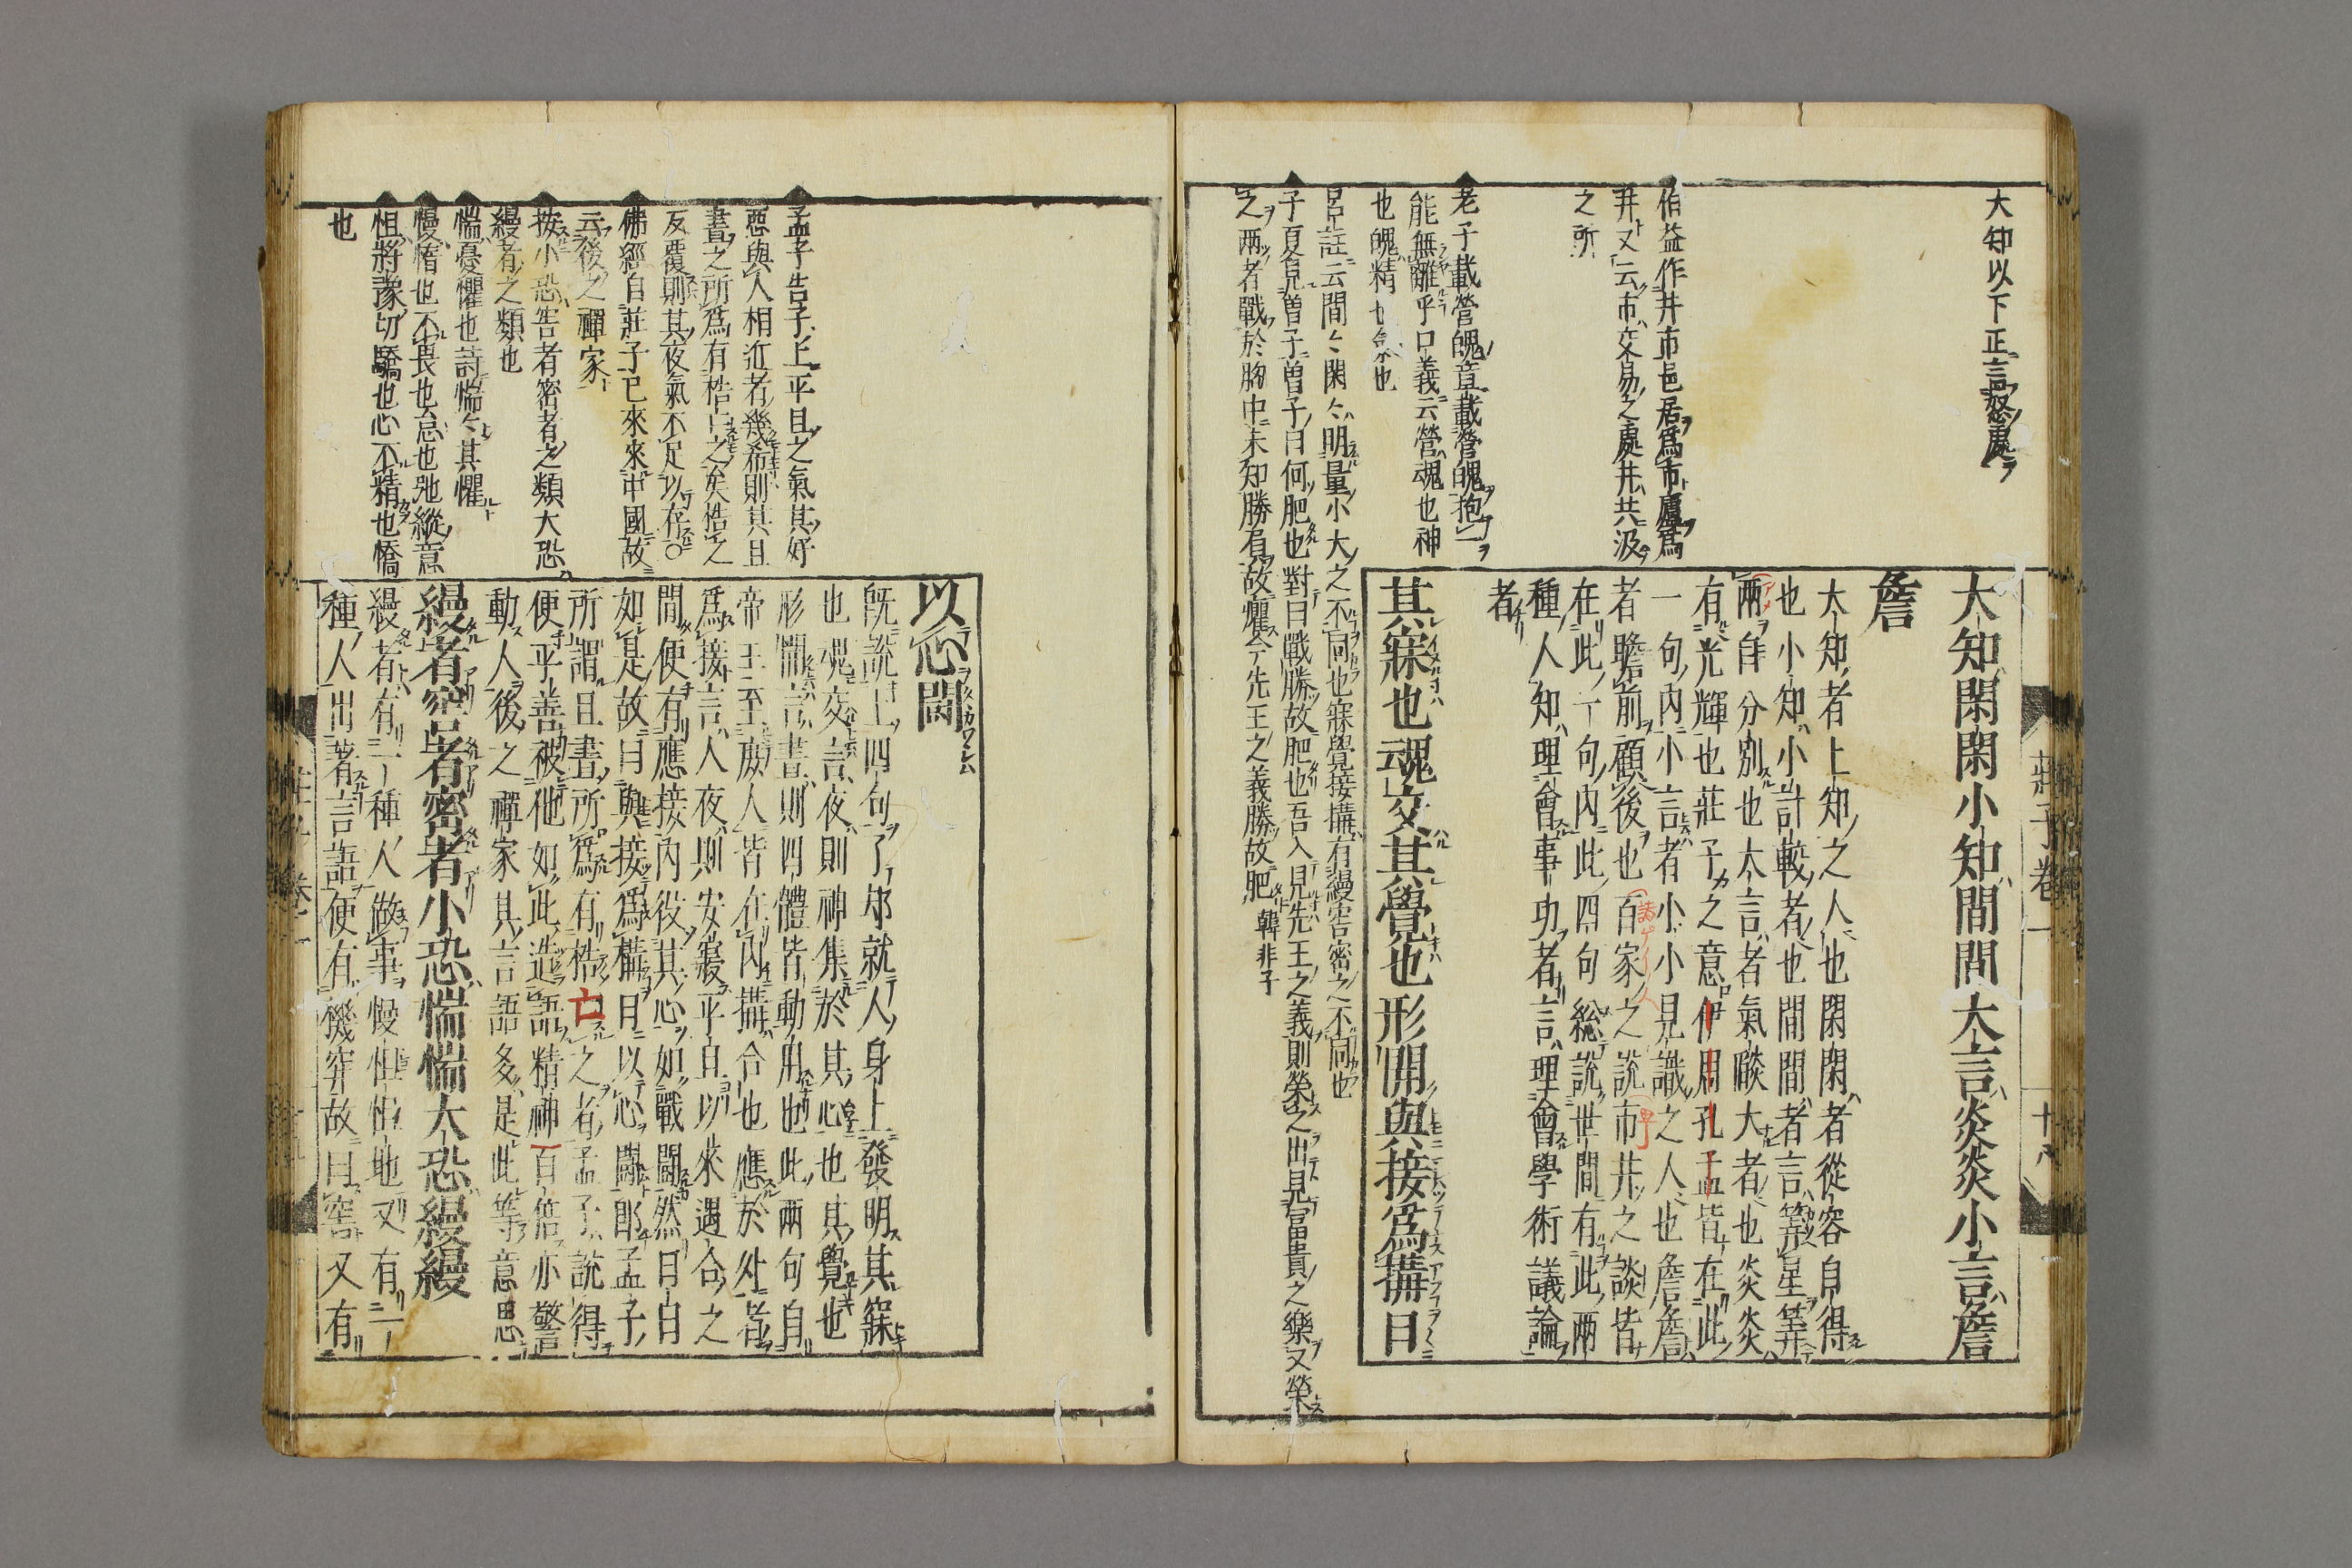 大知以下正言怒處
伯益作井市邑居爲市廬爲
井又云市交易之處井共汲
之所
老子載營魄章載營魄抱一
能無離乎口義云營魂也神
也魄精也
呂註云間〻閑〻明量小大之不同也寐覺接搆有縵窖密之不同也
子夏見曽子曽子曰何肥也對曰戰勝故肥也吾入見先王之義則榮之出見富貴之樂又榮
之兩者戰於胸中未知勝負故癯今先王之義勝故肥 韓非子
大知閑閑小知間間大言炎炎小言詹
詹
大知者上知之人也閑閑者從容自得
也小知小計較者也間間者言筭星筭
兩自分別也大言者氣燄大者也炎炎
有光輝也莊子之意伊周孔孟皆在此
一句內小言者小小見識之人也詹詹
者瞻前顧後也百家之說市井之談皆
在此一句內此四句総說世間有此兩
種人知理會事功者言理會學術議論
者
其寐也魂交其覺也形開與接爲搆日
莊子卷一
十八
孟子告子上平旦之氣其好
惡與人相近者幾希則其旦
晝之所爲有梏亡之矣梏之
反覆則其夜氣不足以存○
佛經自莊子已來來中國故
云後之禪家
按小恐窖者密者之類大恐
縵者之類也
惴憂懼也詩惴〻其懼
慢惰也不畏也怠也弛縱意
怚將豫切驕也心不精也憍
也
以心鬪
旣說上四句了却就人身上發明其寐
也魂交言夜則神集於其心也其覺也
形開言晝則四體皆動用也此兩句自
帝王至庶人皆在內搆合也應於外者
爲接言人夜則安寢平旦以來遇合之
間便有應接內役其心如戰鬪然日日
如是故曰與接爲搆日以心鬪卽孟子
所謂旦晝所爲有梏亡之者孟子說得
便平善被他如此造語精神百倍亦警
動人後之禪家其言語多是此等意思
縵者窖者密者小恐惴惴大恐縵縵
縵者有一種人做事慢怚怚地又有一
種人出著言語便有機穽故曰窖又有